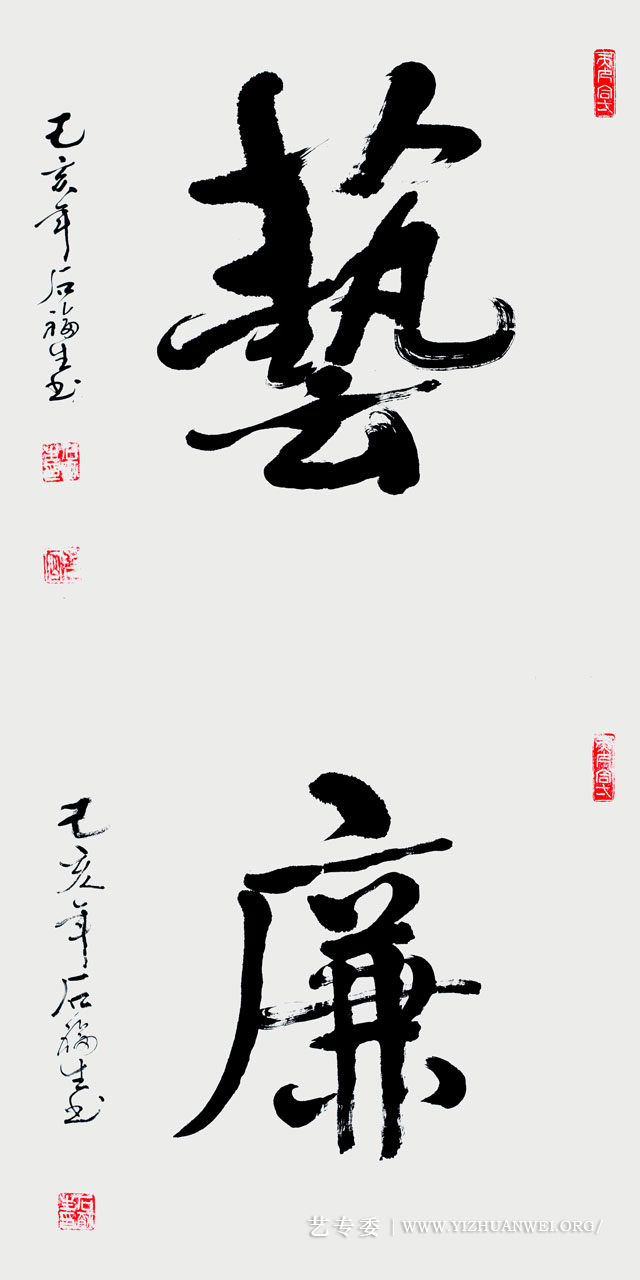 藝
己亥年石福生书
廉
己亥年石福生书
艺专委 | WWW.YIZHUANWEI.ORG/